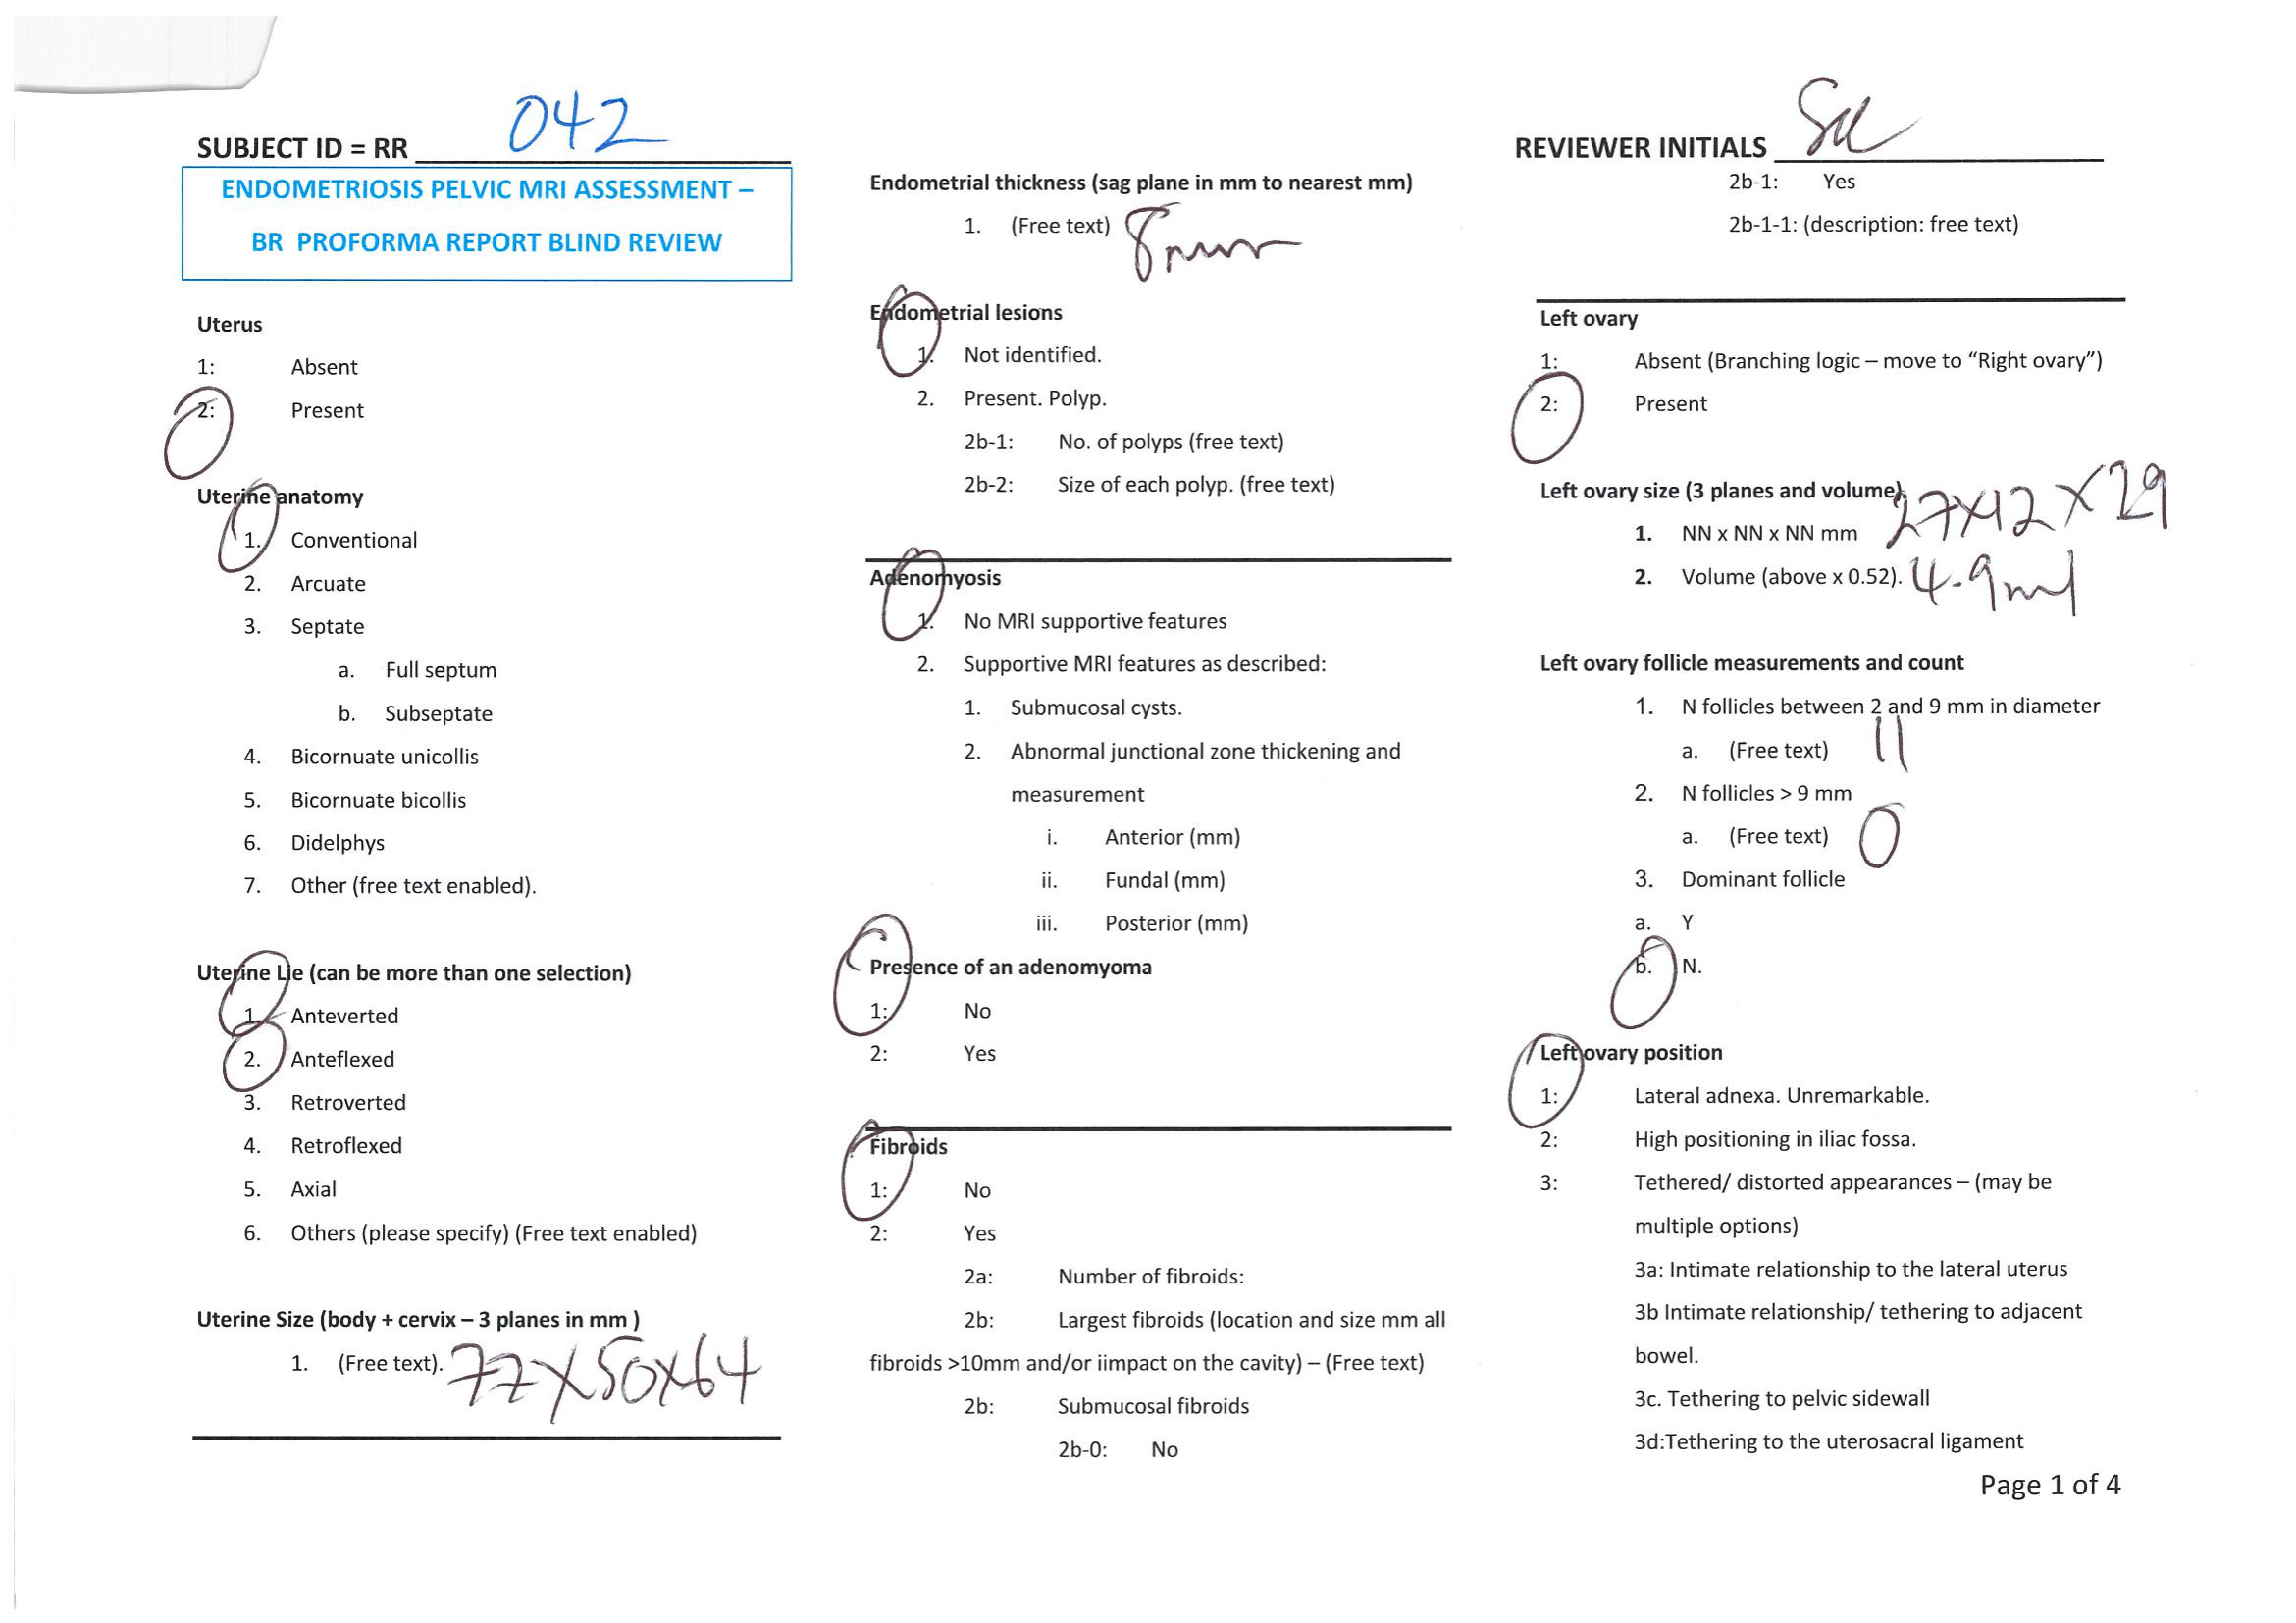 SUBJECT ID = RR 042
ENDOMETRIOSIS PELVIC MRI ASSESSMENT –
BR PROFORMA REPORT BLIND REVIEW
Uterus
1: Absent
2: Present
Uterine anatomy
1. Conventional
2. Arcuate
3. Septate
a. Full septum
b. Subseptate
4. Bicornuate unicollis
5. Bicornuate bicollis
6. Didelphys
7. Other (free text enabled).
Uterine Lie (can be more than one selection)
1. Anteverted
2. Anteflexed
3. Retroverted
4. Retroflexed
5. Axial
6. Others (please specify) (Free text enabled)
Uterine Size (body + cervix – 3 planes in mm )
1. (Free text). 77X50X64
Endometrial thickness (sag plane in mm to nearest mm)
1. (Free text) 8mm
Endometrial lesions
1. Not identified.
2. Present. Polyp.
2b-1: No. of polyps (free text)
2b-2: Size of each polyp. (free text)
Adenomyosis
1. No MRI supportive features
2. Supportive MRI features as described:
1. Submucosal cysts.
2. Abnormal junctional zone thickening and
measurement
i. Anterior (mm)
ii. Fundal (mm)
iii. Posterior (mm)
Presence of an adenomyoma
1: No
2: Yes
Fibroids
1: No
2: Yes
2a: Number of fibroids:
2b: Largest fibroids (location and size mm all
fibroids >10mm and/or iimpact on the cavity) – (Free text)
2b: Submucosal fibroids
2b-0: No
REVIEWER INITIALS
2b-1: Yes
2b-1-1: (description: free text)
Left ovary
1: Absent (Branching logic – move to “Right ovary”)
2: Present
Left ovary size (3 planes and volume)
1. NN x NN x NN mm 27X12X29
2. Volume (above x 0.52). 4.9ml
Left ovary follicle measurements and count
1. N follicles between 2 and 9 mm in diameter
a. (Free text) 11
2. N follicles > 9 mm
a. (Free text) 0
3. Dominant follicle
a. Y
b. N.
Left ovary position
1: Lateral adnexa. Unremarkable.
2: High positioning in iliac fossa.
3: Tethered/ distorted appearances – (may be
multiple options)
3a: Intimate relationship to the lateral uterus
3b Intimate relationship/ tethering to adjacent
bowel.
3c. Tethering to pelvic sidewall
3d:Tethering to the uterosacral ligament
Page 1 of 4